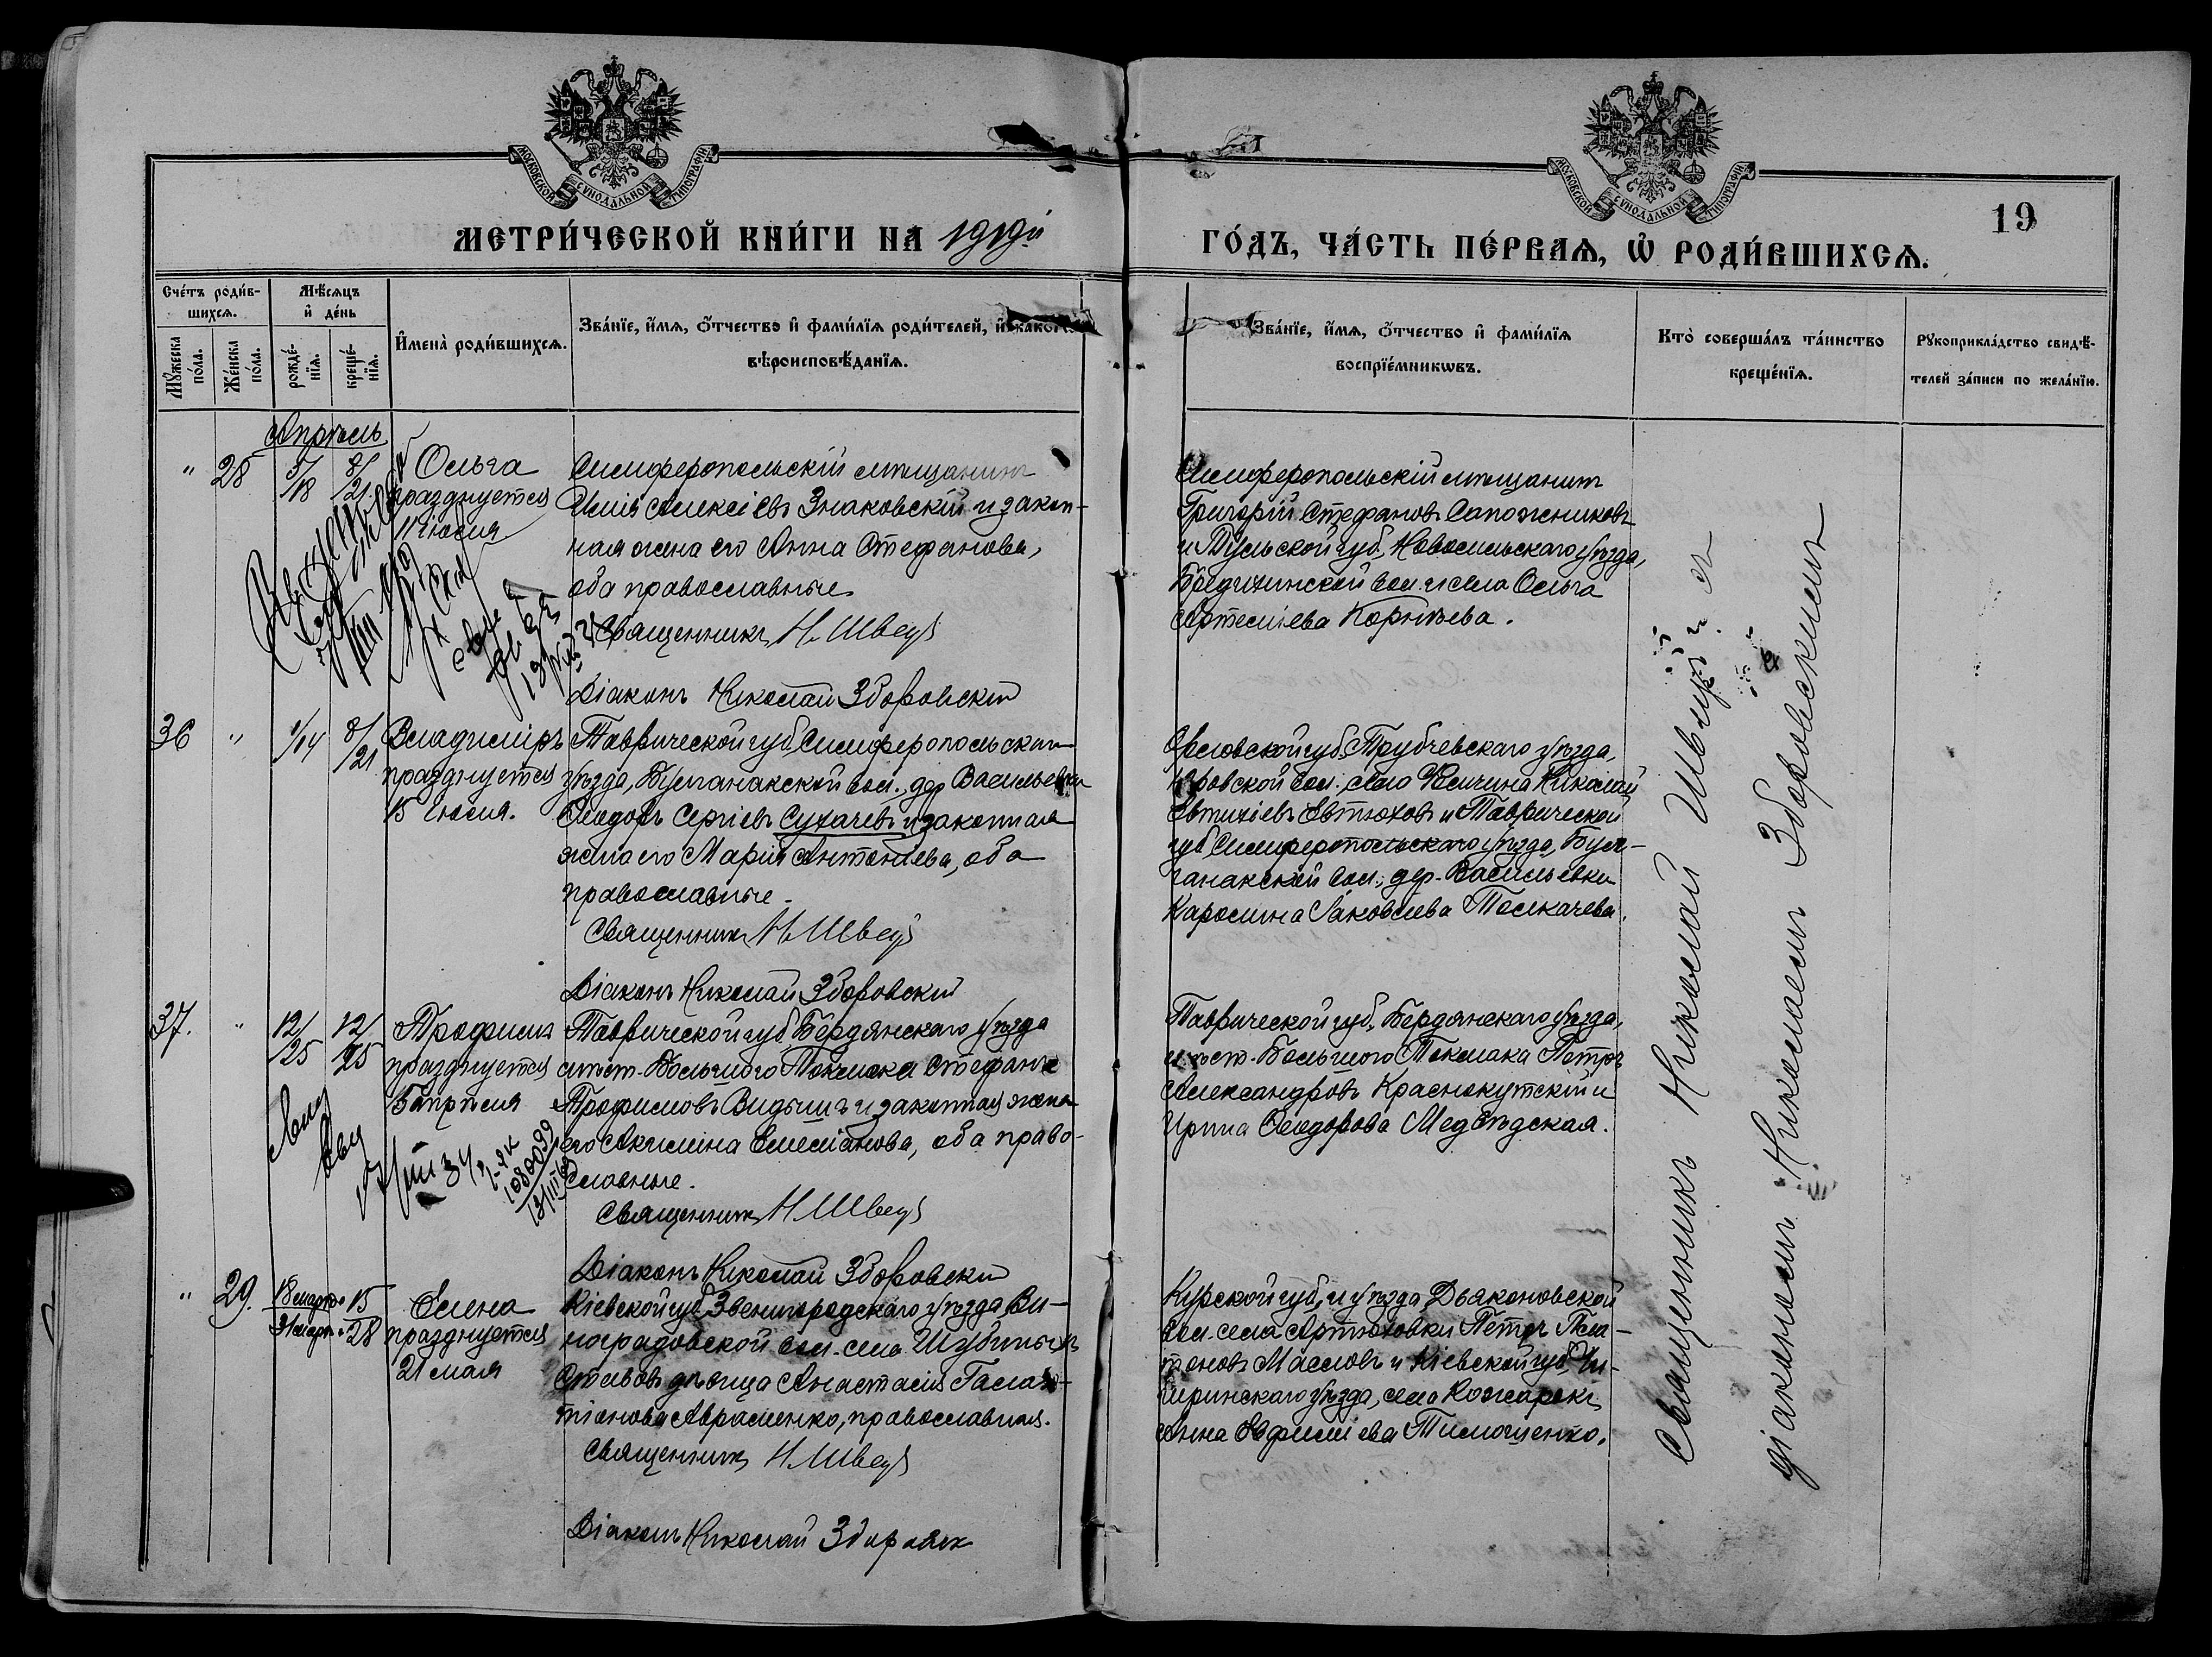 МОСКОВСКОЙ СѴНОДАЛЬНОЙ ТИПОГРАФІИ
МОСКОВСКОЙ СѴНОДАЛЬНОЙ ТИПОГРАФІИ
19
МЕТРИ́ЧЕСКОЙ КНИ́ГИ НА 1919й
ГО́ДЪ, ЧА́СТЬ ПЕ́РВАѦ, Ѡ҆ РОДИ́ВШИХСѦ.
Сче́тъ роди́в-
шихсѧ.
Мꙋ́жеска
по́ла.
Же́нска
по́ла.
Мѣ́сѧцъ
и҆ де́нь
рожде́-
нїѧ.
креще́-
нїѧ.
И҆мена̀ роди́вшихсѧ.
Зва́нїе, и҆́мѧ, о҆́тчество и҆ фами́лїѧ роди́телей, и҆
вѣроисповѣ́данїѧ.
Зва́нїе, и҆́мѧ, о҆́тчество и҆ фами́лїѧ
воспрїе́мникѡвъ.
Кто̀ соверша́лъ та́инство
креще́нїѧ.
Рꙋкоприкла́дство свидѣ́-
телей за́писи по жела́нїю.
Апрѣль
" 28 5/18 8/21 Ольга
празднуется
11 Іюля
Симферопольскій мѣщанинъ
Илія Алексіевъ Знаковскій и закон-
ная жена его Анна Стефанова,
оба православные.
Священникъ Н. Швецъ
Діаконъ Николай Зборовскій
Симферопольскій мѣщанинъ
Григорій Стефановъ Сапожниковъ
и Тульской губ., Новосильскаго уѣзда,
вол. и села Ольга
Артеміева Корнѣева.
36 " 1/14 8/21 Владиміръ
празднуется
15 Іюля.
Таврической губ. Симферопольскаго
уѣзда, Булганакской вол., дер. Васильевки
Ѳеодоръ Сергіевъ Сухачевъ и законная
жена его Марія Антоніева, оба
православные.
Священникъ Н. Швецъ
Діаконъ Николай Зборовскій
Орловской губ. Трубчевскаго уѣзда,
вол. село Николай
Евтихіевъ Евтюховъ и Таврической
губ. Симферопольскаго уѣзда, Бул-
ганакской вол., дер. Васильевки
Каролина Іаковлева Толкачева.
37. " 12/25 12/25 Трофимъ
празднуется
Таврической губ. Бердянскаго уѣзда
мѣст. Большого Токмака Стефанъ
Трофимовъ и законная жена
его Акилина Емеліанова, оба право-
славные.
Священникъ Н. Швецъ
Діаконъ Николай Зборовскій
Таврической губ. Бердянскаго уѣзда,
мѣст. Большого Токмака Петръ
Александровъ Краснокутскій и
Ирина Ѳеодорова Медвѣдская.
" 29. 18 марта 31 марта 15/28 Елена
празднуется
21 мая
Кіевской губ. Звенигородскаго уѣзда, Ви-
ноградовской вол. села
дѣвица Анастасія Гала-
тіонова Авраменко, православная.
Священникъ Н. Швецъ
Діаконъ Николай Зборовск
Курской губ. и уѣзда Дьяконовской
вол. села Артюховки Петръ Пла-
тоновъ Масловъ и Кіевской губ. Чи-
гиринскаго уѣзда, села
Анна Евфиміева Тимошенко.
Священникъ Николай Швецъ съ
діакономъ Николаемъ Зборовскимъ